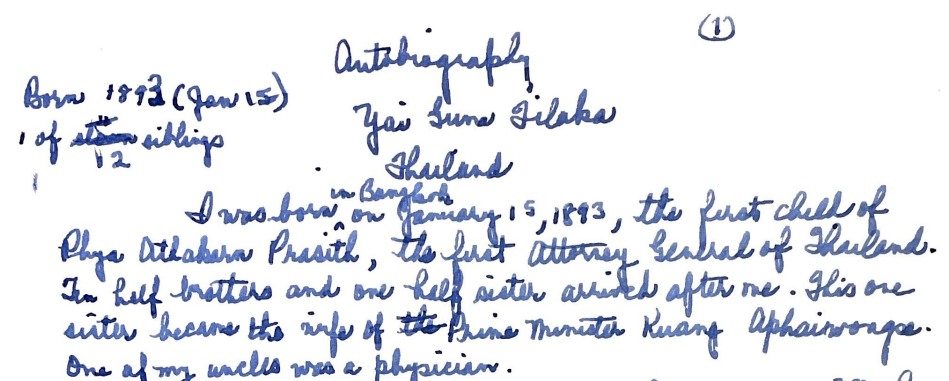 (1)
Autobiography
Born 1893 (Jan 15)
Yai Suna Tilaka
1 of siblings
12
Thailand
in Bangkok
I was born ^ on January 15, 1893, the first child of
Phya Athakarn Prasith, the first Attorney General of Thailand.
Ten half brothers and one half sister arrived after me. This one
sister became the wife of the Prime Minister Kuang Aphaiwongse.
One of my uncles was a physician.